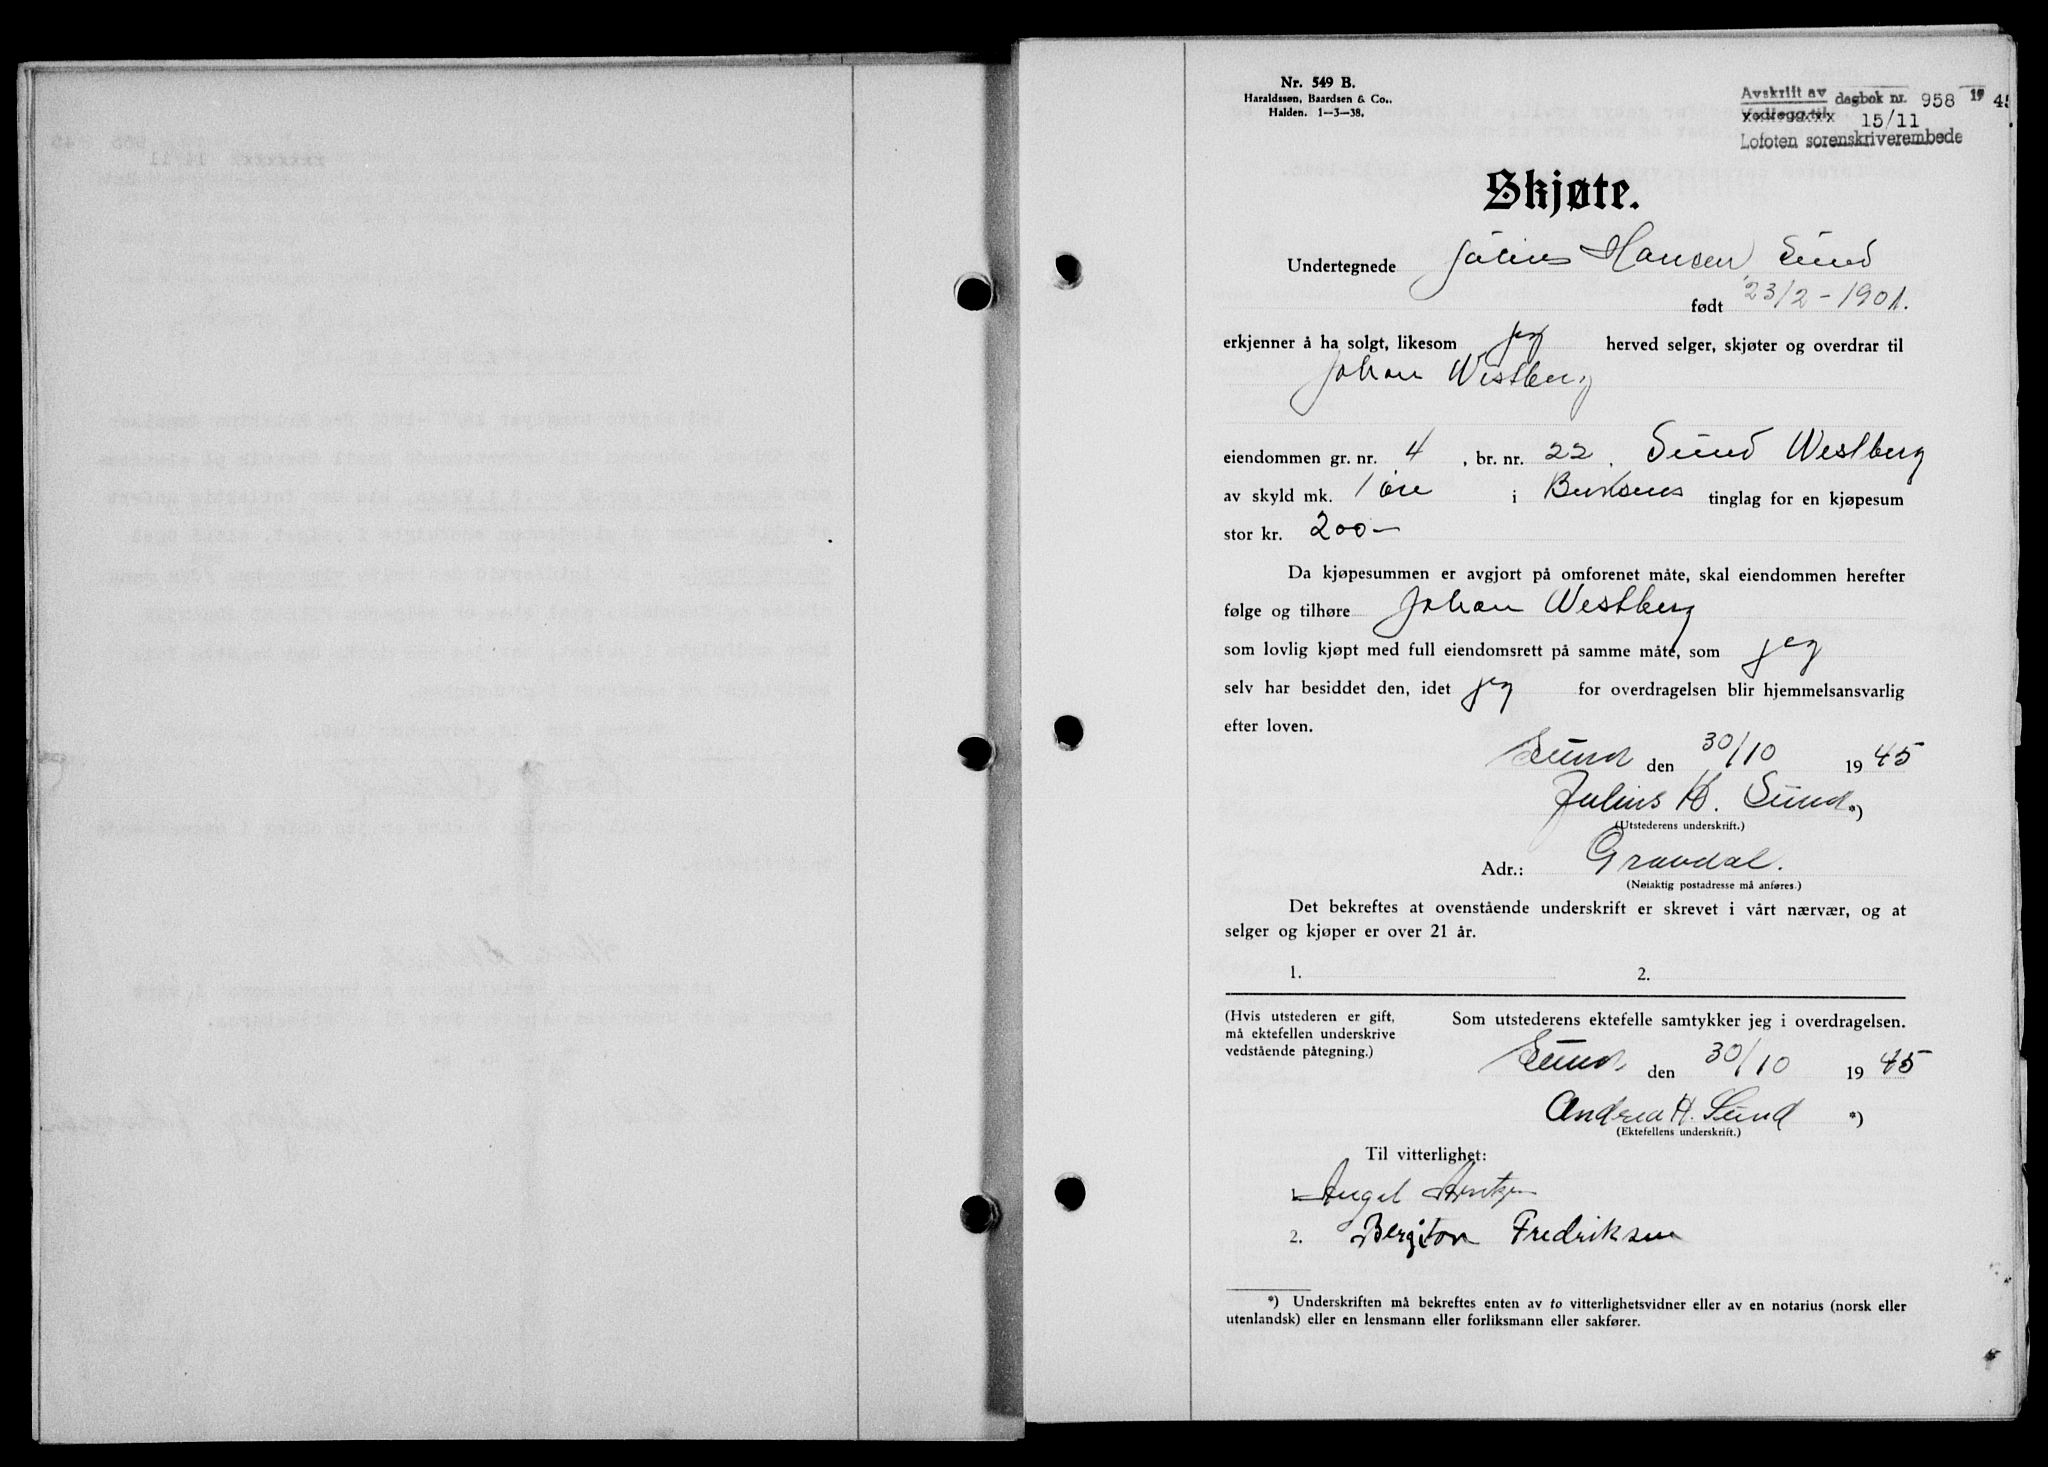 Nr. 549 B.
Haraldssen, Baardsen & Co.,
Halden. 1—3—38.
Avskrift av
Vedlegg til dagbok nr. 958 1945
15/11
Lofoten sorenskriverembede
Skjøte.
Undertegnede Julius Hansen, Sund
født 23/2 - 1901.
erkjenner å ha solgt, likesom jeg herved selger, skjøter og overdrar til
Johan Westberg
eiendommen gr. nr. 4, br. nr. 22. Sund Westberg
av skyld mk. 1 øre i Buksnes tinglag for en kjøpesum
stor kr. 200-
Da kjøpesummen er avgjort på omforenet måte, skal eiendommen herefter
følge og tilhøre Johan Westberg
som lovlig kjøpt med full eiendomsrett på samme måte, som jeg
selv har besiddet den, idet jeg for overdragelsen blir hjemmelsansvarlig
efter loven.
Sund den 30/10 1945
Julius H. Sund *)
(Utstederens underskrift.)
Adr.: Gravdal.
(Nøiaktig postadresse må anføres.)
Det bekreftes at ovenstående underskrift er skrevet i vårt nærvær, og at
selger og kjøper er over 21 år.
1. 2.
(Hvis utstederen er gift,
må ektefellen underskrive
vedstående påtegning.)
Som utstederens ektefelle samtykker jeg i overdragelsen.
Sund den 30/10 1945
Andrea H. Sund *)
(Ektefellens underskrift.)
Til vitterlighet:
1. Angel Arntzen
2. Bergiton Fredriksen
*) Underskriften må bekreftes enten av to vitterlighetsvidner eller av en notarius (norsk eller
utenlandsk) eller en lensmann eller forliksmann eller sakfører.